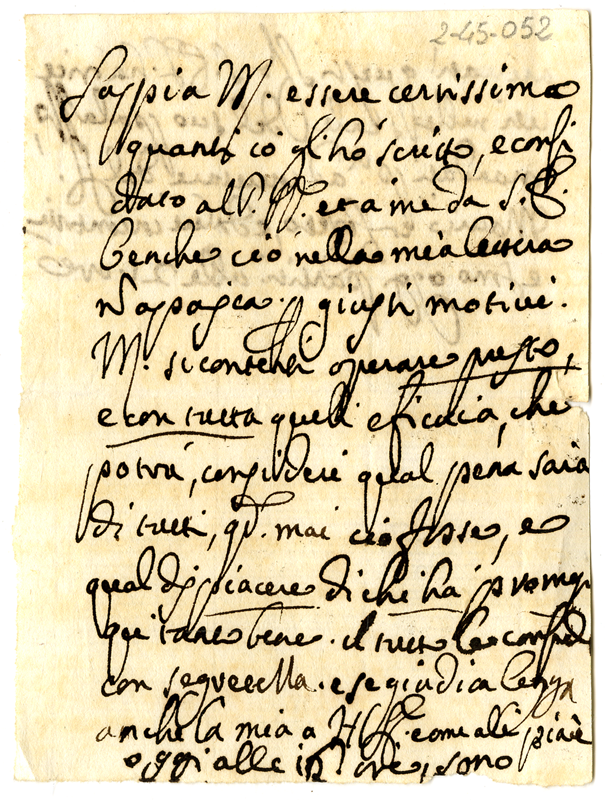 2-45-052
Sappia M. essere certissimo
quanto io gl'hò scritto, e confi
dato al P. et a me da S. E.
benche ciò nella mia lettera
appaia giusti motivi.
M. si contenti operare presto,
e con tutta quell eficacia, che
potrà, consideri qual pena sarà
di tutti, qdo. mai ciò fosse, e
qual dispiacere di chi hà promes
tanto bene. il tutto le confido
con segretezza. e se giudica
anche la mia a come alli piace
oggi alle ore, sono